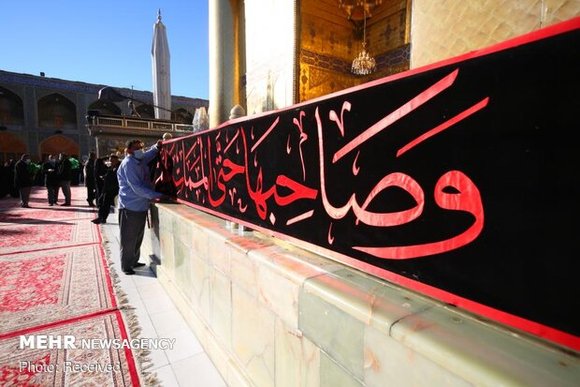 وصاحبها حتى
MEHR NEWSAGENCY
Photo: Received